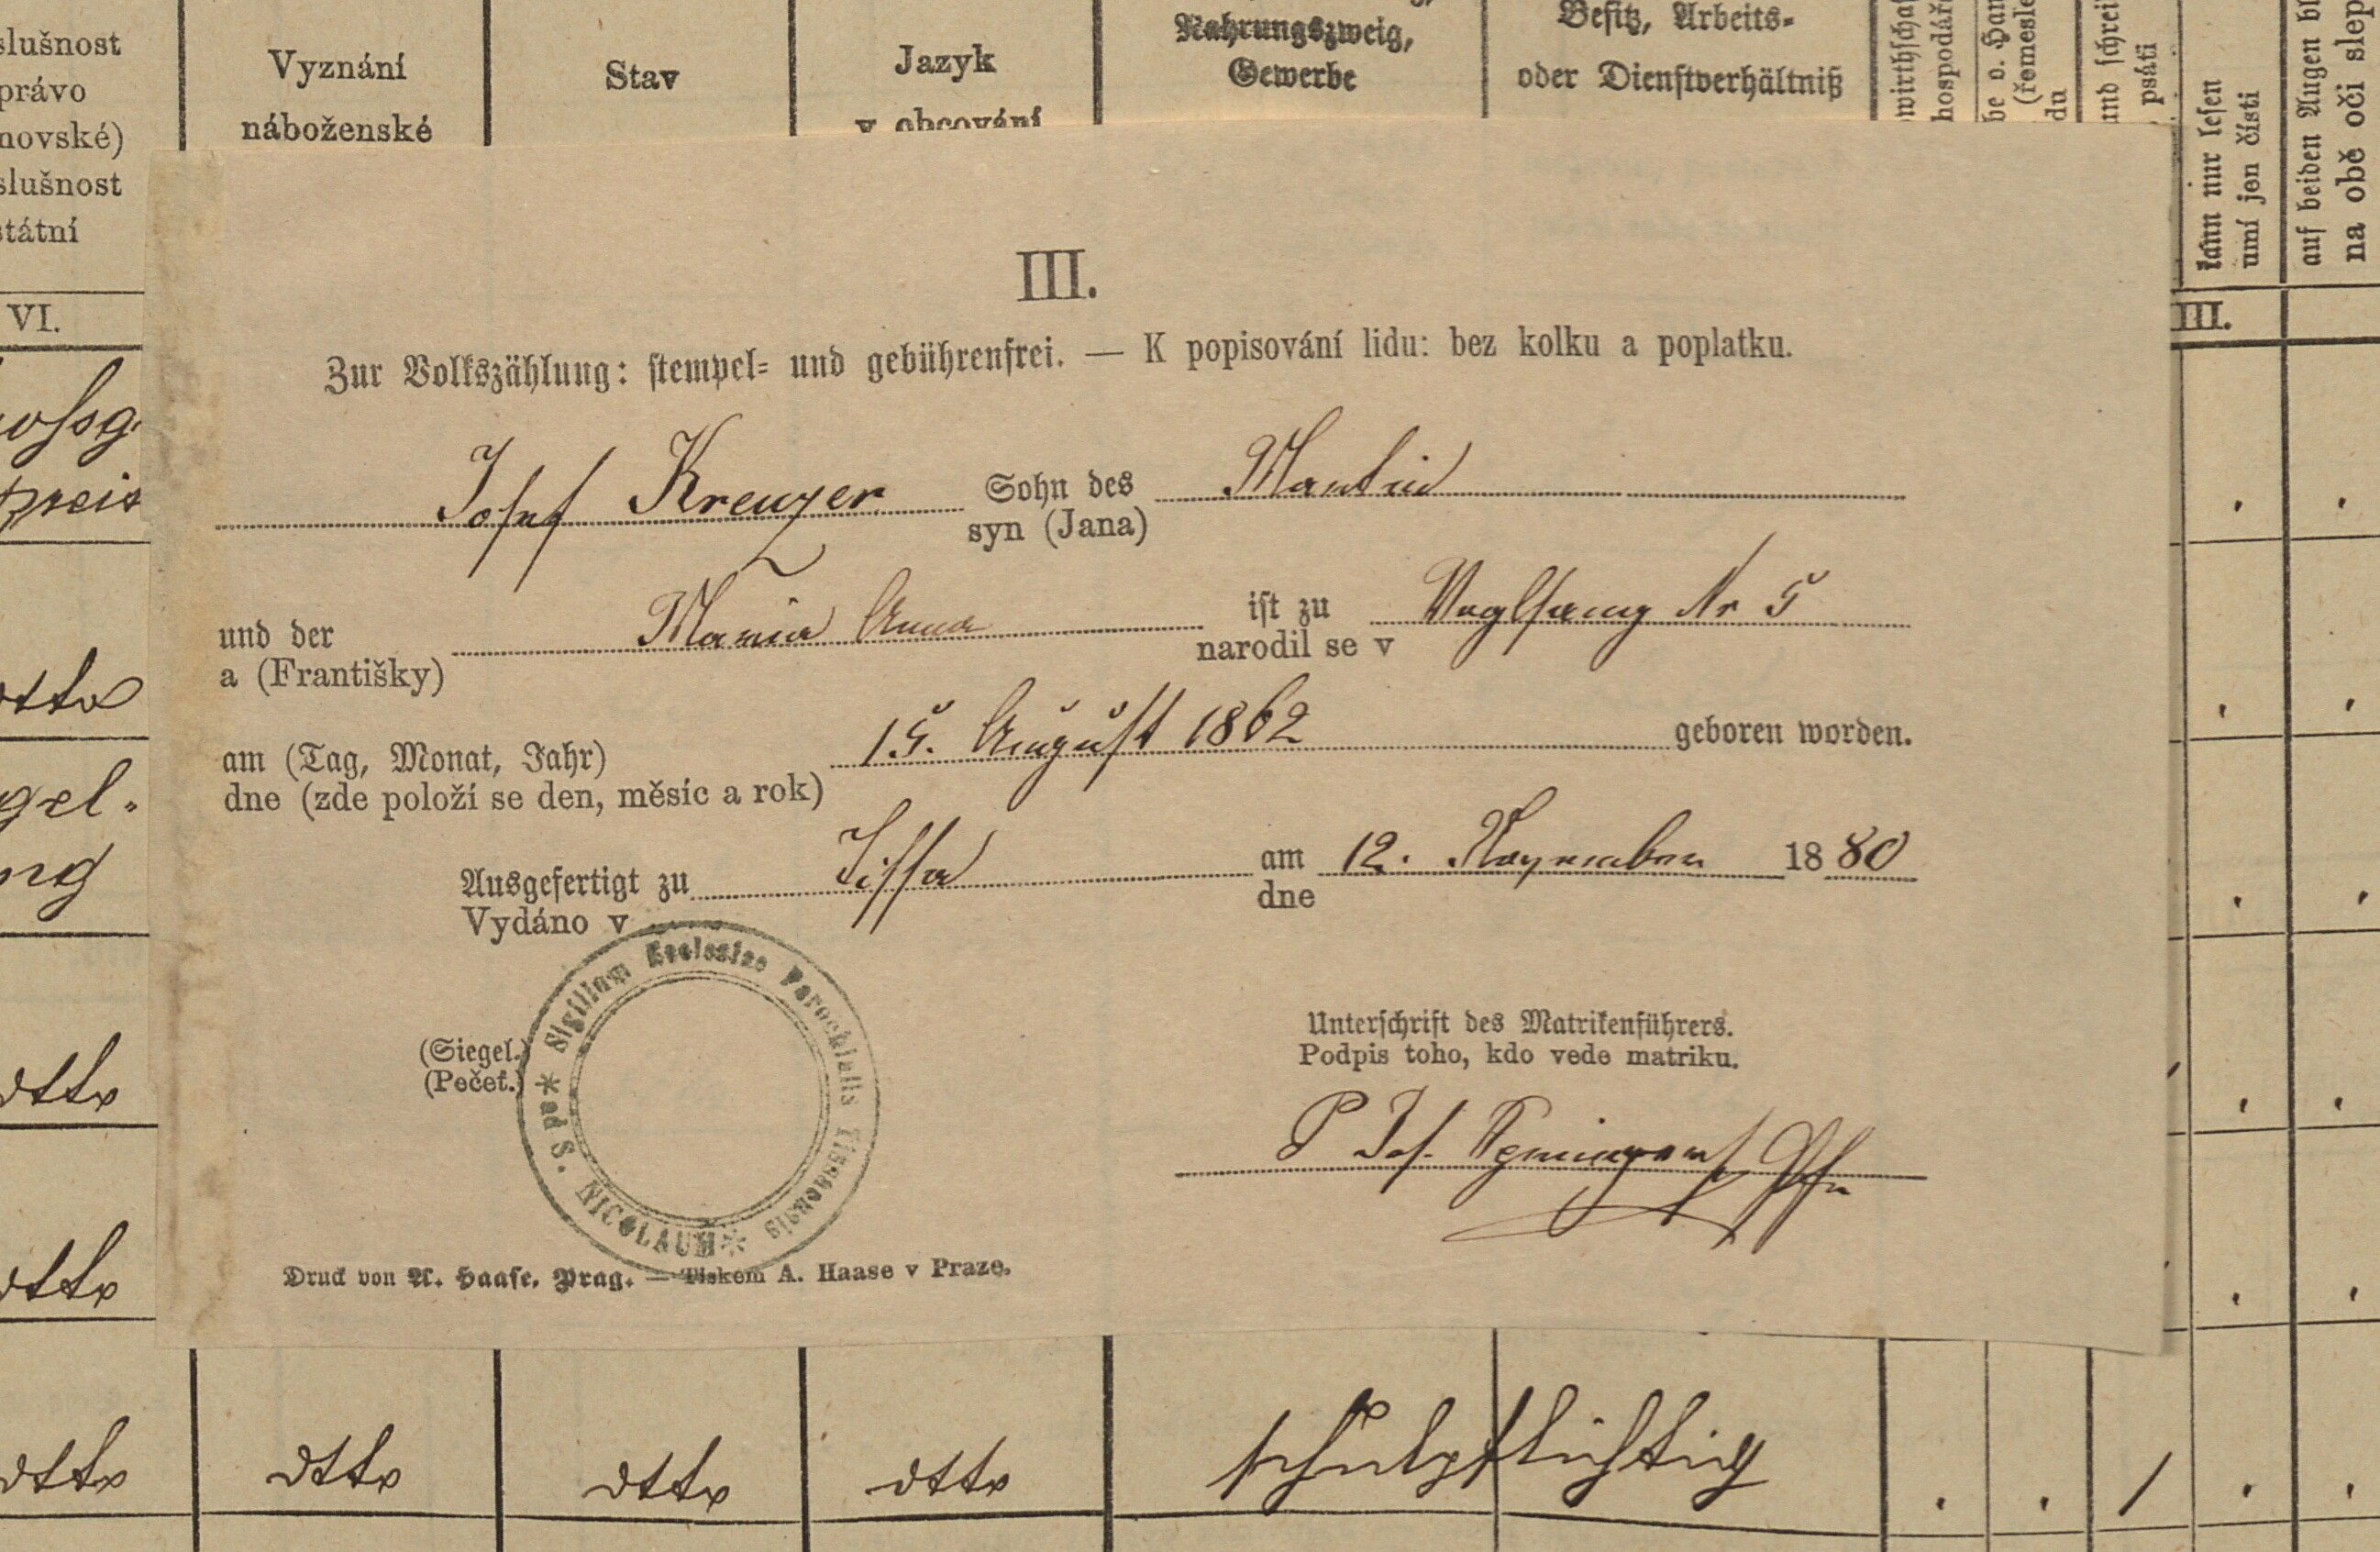 slušnost
právo
novské)
slušnost
státní
VI.
Vyznání
náboženské
Stav
Jazyk
v obcování
Nahrungszweig,
Gewerbe
Besitz, Arbeits-
oder Dienstverhältniß
wirthschaf
hospodář
be o. Han
(řemesle
du
und schrei
psáti
kann nur lesen
umí jen čísti
auf beiden Augen bl
na obě oči slep
III.
III.
Zur Volkszählung: stempel- und gebührenfrei. — K popisování lidu: bez kolku a poplatku.
Josef Kreuzer Sohn des Martin
syn (Jana)
und der Maria Anna ist zu Voglsang Nr 5
a (Františky) narodil se v
am (Tag, Monat, Jahr) 15. August 1862 geboren worden.
dne (zde položí se den, měsíc a rok)
Ausgefertigt zu Tissa am 12. November 1880
Vydáno v dne
(Siegel.)
(Pečeť.)
Sigillum Ecclesiae Parochialis Tissaensis * ad S. NICOLAUM *
Unterschrift des Matrikenführers.
Podpis toho, kdo vede matriku.
P Jos. Pfr
Druck von A. Haase, Prag. — Tiskem A. Haase v Praze.
preis
dtto
gel.
ng
dtto
dtto
dtto dtto dtto dtto schulpflichtig /